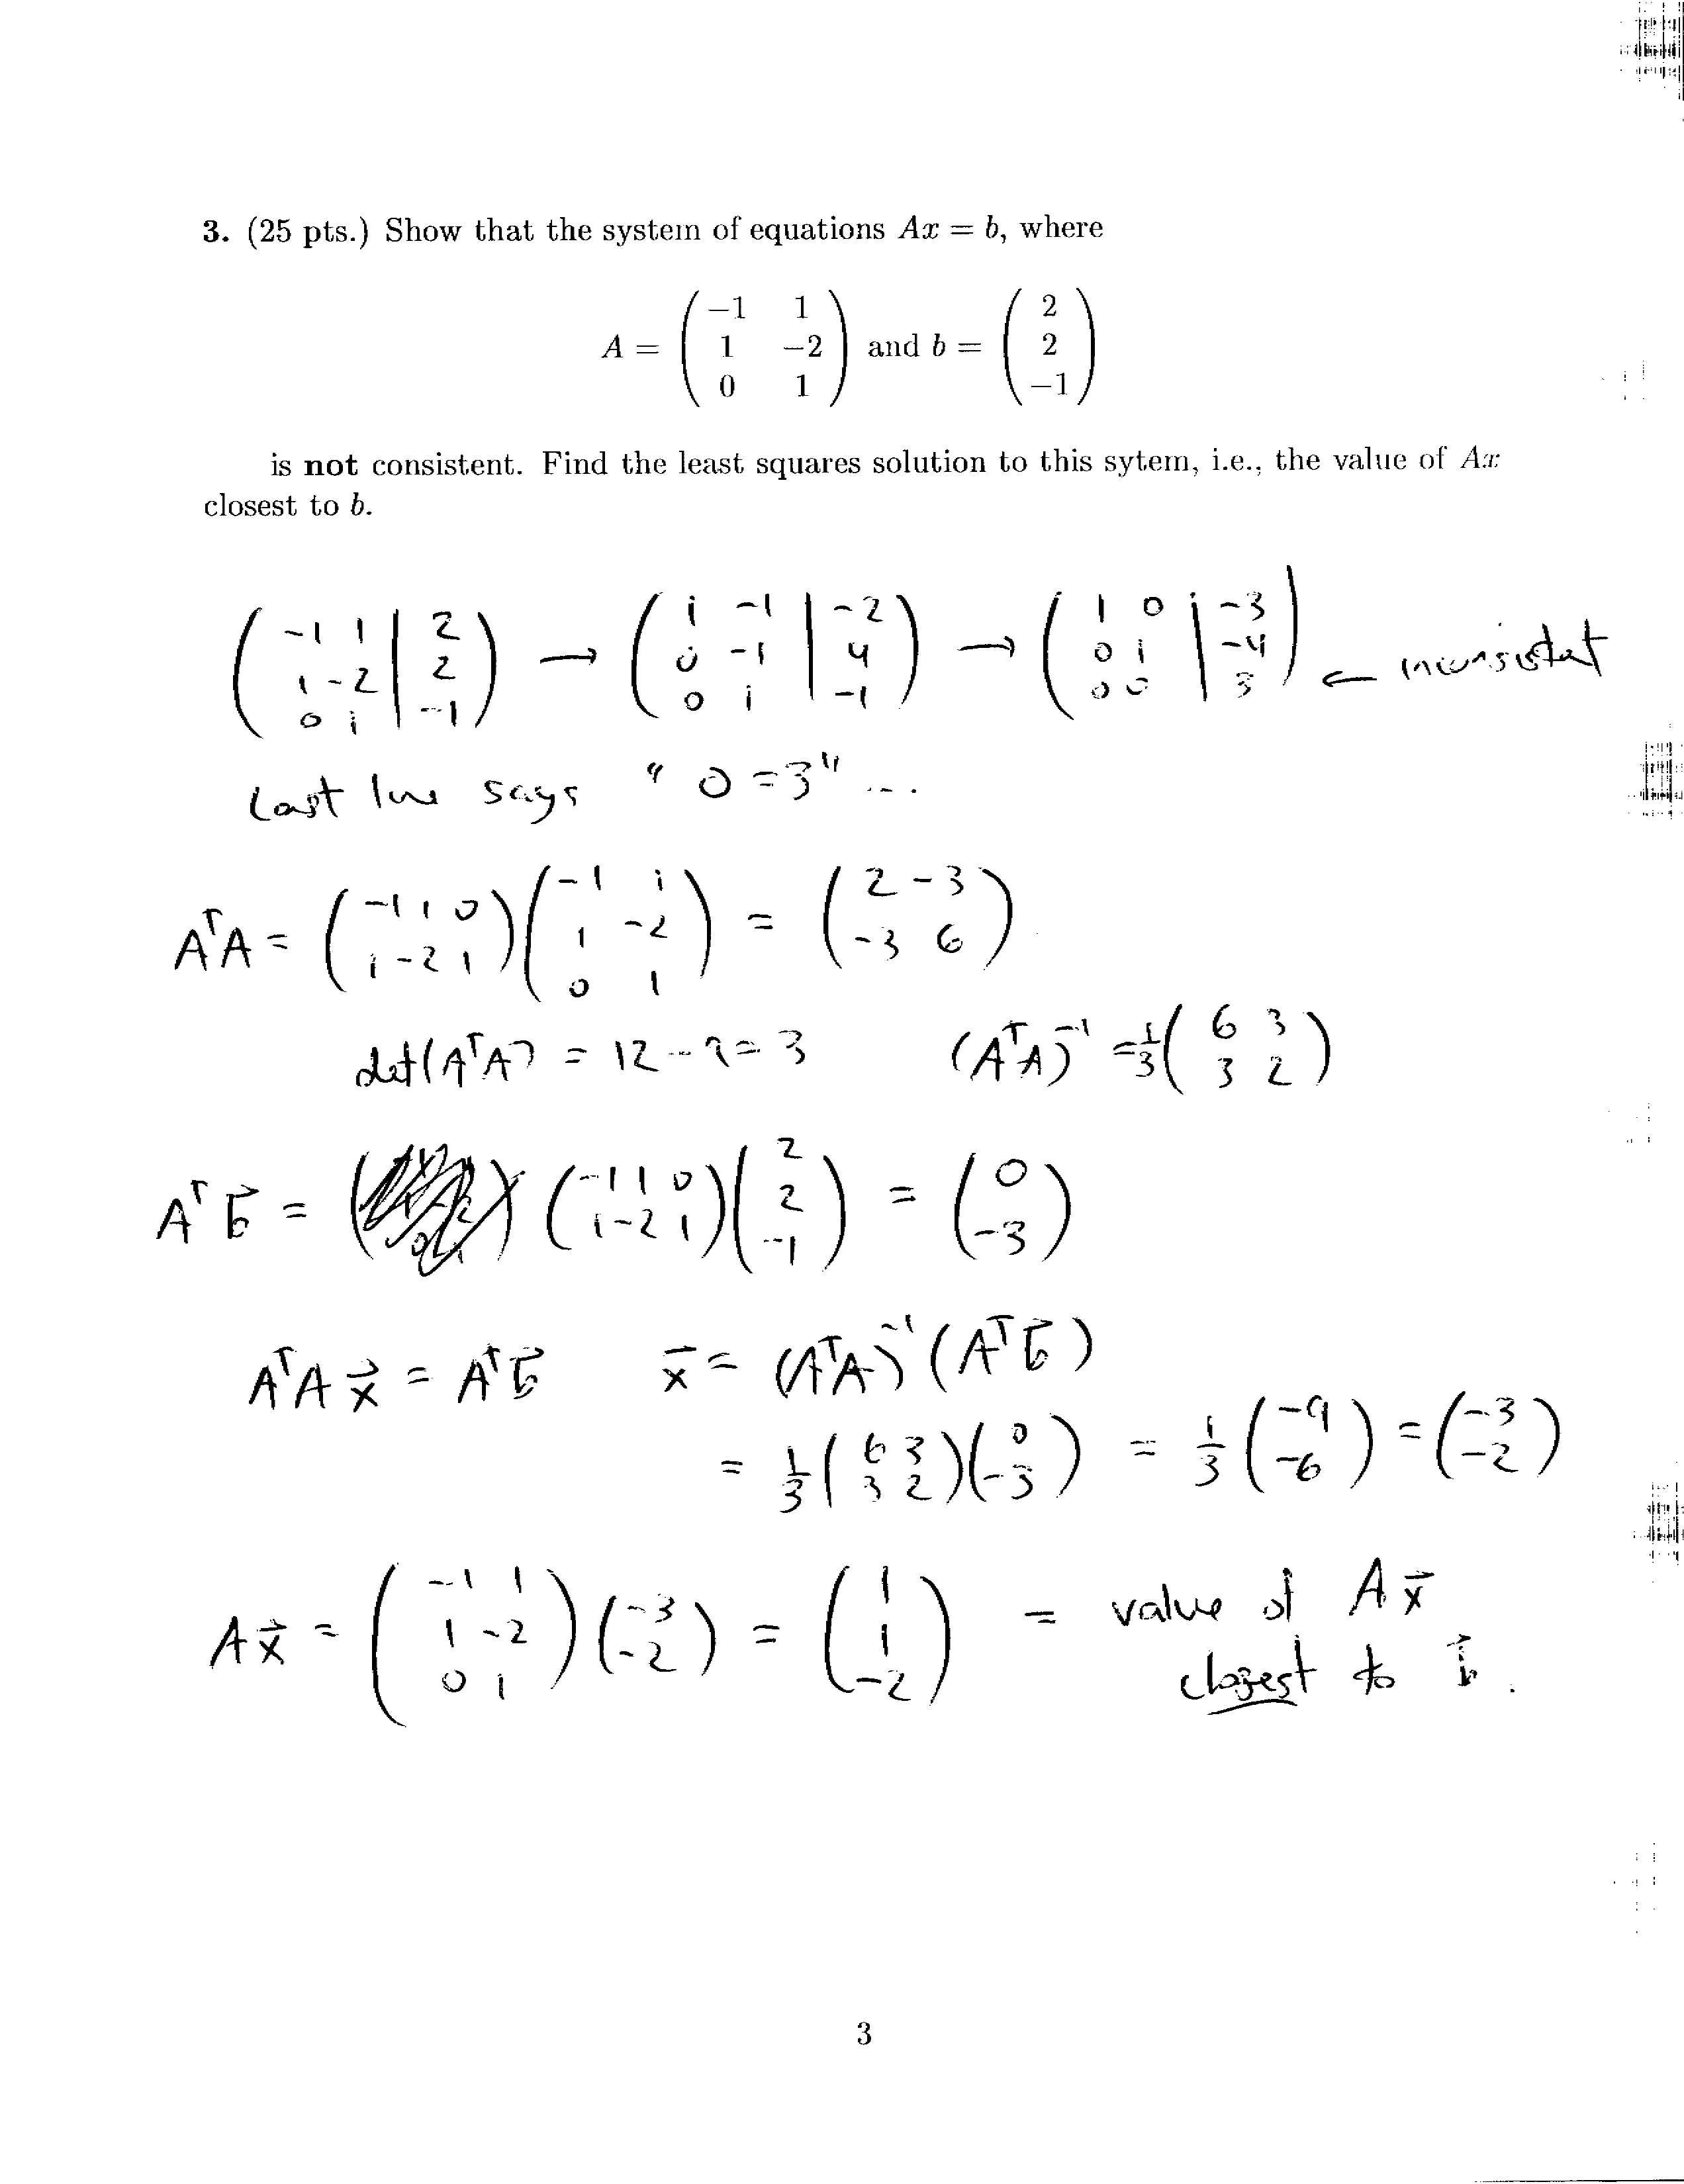 3. (25 pts.) Show that the system of equations Ax = b, where
A = ( −1 1 ; 1 −2 ; 0 1 ) and b = ( 2 ; 2 ; −1 )
is not consistent. Find the least squares solution to this sytem, i.e., the value of Ax
closest to b.
( -1 1 | 2 ; 1 -2 | 2 ; 0 1 | -1 ) → ( 1 -1 | -2 ; 0 -1 | 4 ; 0 1 | -1 ) → ( 1 0 | -3 ; 0 1 | -4 ; 0 0 | 3 ) ← inconsistat
Last line says "0 = 3" ...
AᵀA = ( -1 1 0 ; 1 -2 1 ) ( -1 1 ; 1 -2 ; 0 1 ) = ( 2 -3 ; -3 6 )
det(AᵀA) = 12 - 9 = 3 (AᵀA)⁻¹ = 1/3 ( 6 3 ; 3 2 )
Aᵀb⃗ = ( -1 1 0 ; 1 -2 1 ) ( 2 ; 2 ; -1 ) = ( 0 ; -3 )
AᵀA x⃗ = Aᵀb⃗ x⃗ = (AᵀA)⁻¹ (Aᵀb⃗)
= 1/3 ( 6 3 ; 3 2 ) ( 0 ; -3 ) = 1/3 ( -9 ; -6 ) = ( -3 ; -2 )
A x⃗ = ( -1 1 ; 1 -2 ; 0 1 ) ( -3 ; -2 ) = ( 1 ; 1 ; -2 ) = value of A x⃗
closest to b⃗.
3